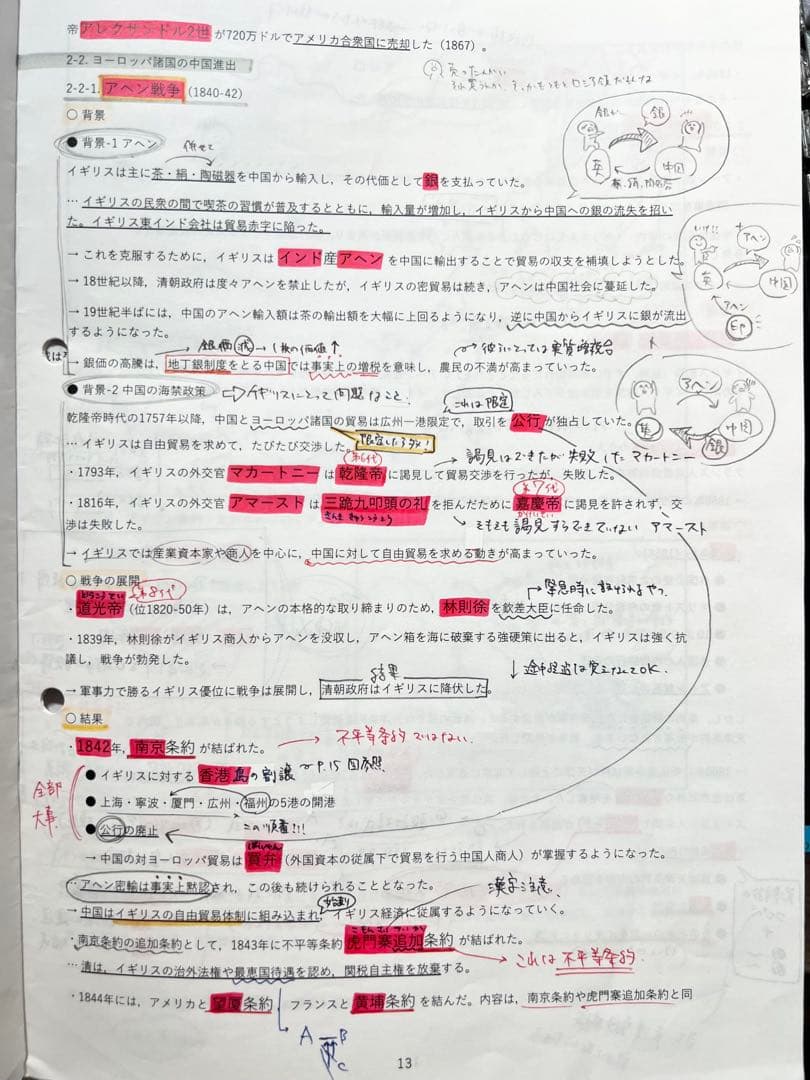 帝アレクサンドル2世が720万ドルでアメリカ合衆国に売却した（1867）。
2-2. ヨーロッパ諸国の中国進出
2-2-1. アヘン戦争（1840-42）
○ 背景
● 背景-1 アヘン
併せて
イギリスは主に茶・絹・陶磁器を中国から輸入し，その代価として銀を支払っていた。
… イギリスの民衆の間で喫茶の習慣が普及するとともに，輸入量が増加し，イギリスから中国への銀の流失を招い
た。イギリス東インド会社は貿易赤字に陥った。
→ これを克服するために，イギリスはインド産アヘンを中国に輸出することで貿易の収支を補填しようとした。
→ 18世紀以降，清朝政府は度々アヘンを禁止したが，イギリスの密貿易は続き，アヘンは中国社会に蔓延した。
→ 19世紀半ばには，中国のアヘン輸入額は茶の輸出額を大幅に上回るようになり，逆に中国からイギリスに銀が流出
するようになった。
銀価 減 → 1枚の価値↑
→ 銀価の高騰は，地丁銀制度をとる中国では事実上の増税を意味し，農民の不満が高まっていった。
銀
英
中国
アヘン
英
中国
アヘン
アヘン
英
中国
銀
● 背景-2 中国の海禁政策
⇒イギリスにとって問題なこと！
これは限定
乾隆帝時代の1757年以降，中国とヨーロッパ諸国の貿易は広州一港限定で，取引を公行が独占していた。
… イギリスは自由貿易を求めて，たびたび交渉した。
謁見はできたが失敗したマカートニー
第6代
・1793年，イギリスの外交官マカートニーは乾隆帝に謁見して貿易交渉を行ったが，失敗した。
第7代
・1816年，イギリスの外交官アマーストは三跪九叩頭の礼を拒んだために嘉慶帝に謁見を許されず，交
渉は失敗した。
そもそも謁見すらできていない アマースト
→ イギリスでは産業資本家や商人を中心に，中国に対して自由貿易を求める動きが高まっていった。
○ 戦争の展開
どうこうてい
第8代
緊急時に設けられるやつ。
・道光帝（位1820-50年）は，アヘンの本格的な取り締まりのため，林則徐を欽差大臣に任命した。
・1839年，林則徐がイギリス商人からアヘンを没収し，アヘン箱を海に破棄する強硬策に出ると，イギリスは強く抗
議し，戦争が勃発した。
結果
→ 軍事力で勝るイギリス優位に戦争は展開し，清朝政府はイギリスに降伏した。
○ 結果
・1842年，南京条約が結ばれた。
→ 不平等条約ではない。
● イギリスに対する香港島の割譲
P.15 図参照
● 上海・寧波・厦門・広州・福州の5港の開港
全部
大事．
● 公行の廃止
この順番!!!
ばいべん
→ 中国の対ヨーロッパ貿易は買弁（外国資本の従属下で貿易を行う中国人商人）が掌握するようになった。
… アヘン密輸は事実上黙認され，この後も続けられることとなった。
漢字注意
→ 中国はイギリスの自由貿易体制に組み込まれ，イギリス経済に従属するようになっていく。
・南京条約の追加条約として，1843年に不平等条約虎門寨追加条約が結ばれた。
→ これは不平等条約
… 清は，イギリスの治外法権や最恵国待遇を認め，関税自主権を放棄する。
・1844年には，アメリカと望厦条約，フランスと黄埔条約を結んだ。内容は，南京条約や虎門寨追加条約と同
A
B
C
13